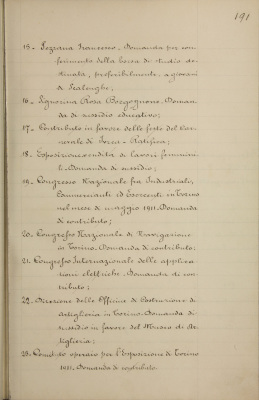 191
15- Pezzana Francesco. Domanda per con-
ferimento della borsa di studio de-
stinata, preferibilmente, a giovani
di Scalenghe;
16- Signorina Rosa Borgognone. Doman-
da di sussidio educativo;
17- Contributo in favore delle feste del Car-
nevale di Torino - Ratifica;
18- Esposizione vendita di lavori femmini-
li. Domanda di sussidio;
19- Congresso Nazionale fra Industriali,
Commercianti ed Esercenti in Torino
nel mese di maggio 1911. Domanda
di contributo;
20- Congresso Nazionale di Navigazione
in Torino. Domanda di contributo;
21- Congresso Internazionale delle applica-
zioni elettriche. Domanda di con-
tributo;
22- Direzione delle Officine di Costruzione di
Artiglieria in Torino. Domanda di
sussidio in favore del Museo di Ar-
tiglieria;
23- Comitato operaio per l'Esposizione di Torino
1911. Domanda di contributo.